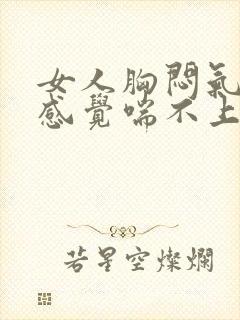 女人胸悶氣
感覺喘不上
若星空燦爛